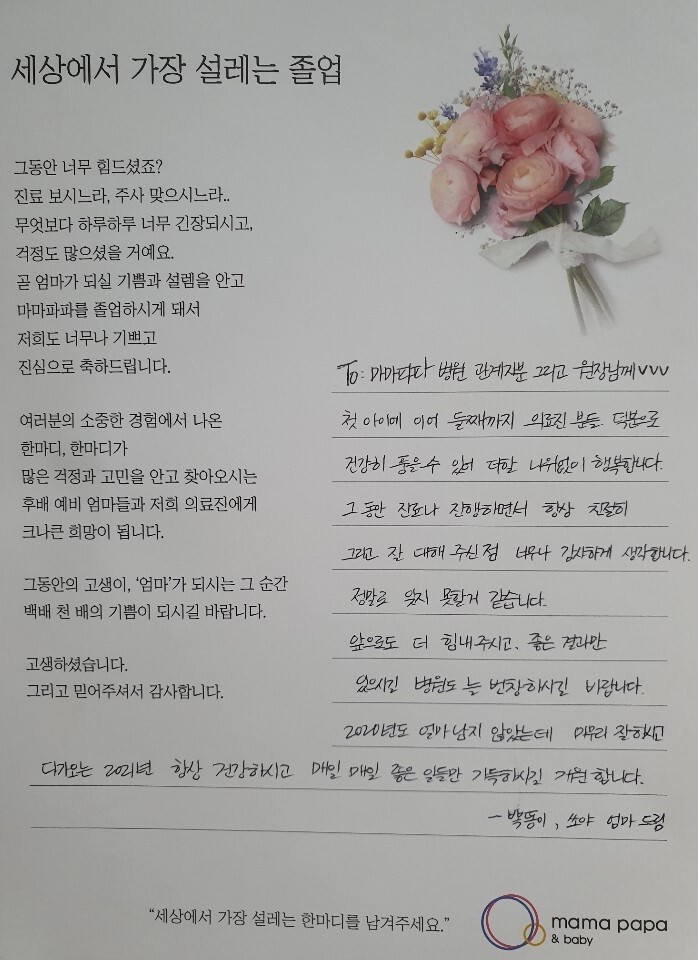 세상에서 가장 설레는 졸업
그동안 너무 힘드셨죠?
진료 보시느라, 주사 맞으시느라..
무엇보다 하루하루 너무 긴장되시고,
걱정도 많으셨을 거예요.
곧 엄마가 되실 기쁨과 설렘을 안고
마마파파를 졸업하시게 돼서
저희도 너무나 기쁘고
진심으로 축하드립니다.
여러분의 소중한 경험에서 나온
한마디, 한마디가
많은 걱정과 고민을 안고 찾아오시는
후배 예비 엄마들과 저희 의료진에게
크나큰 희망이 됩니다.
그동안의 고생이, ‘엄마’가 되시는 그 순간
백배 천 배의 기쁨이 되시길 바랍니다.
고생하셨습니다.
그리고 믿어주셔서 감사합니다.
To: 마마파파 병원 관계자분 그리고 원장님께vvv
첫 아이에 이어 둘째까지 의료진 분들 덕분으로
건강히 품을 수 있어 더할 나위없이 행복합니다.
그동안 진료나 진행하면서 항상 친절히
그리고 잘 대해 주신점 너무나 감사하게 생각합니다.
정말로 잊지 못할거 같습니다.
앞으로도 더 힘내주시고, 좋은 결과만
있으시길 병원도 늘 번창하시길 바랍니다.
2020년도 얼마남지 않았는데 마무리 잘하시고
다가오는 2021년 항상 건강하시고 매일 매일 좋은 일들만 가득하시길 기원합니다.
- 뽁뚱이, 쏘야 엄마 드림
“세상에서 가장 설레는 한마디를 남겨주세요.”
mama papa
& baby